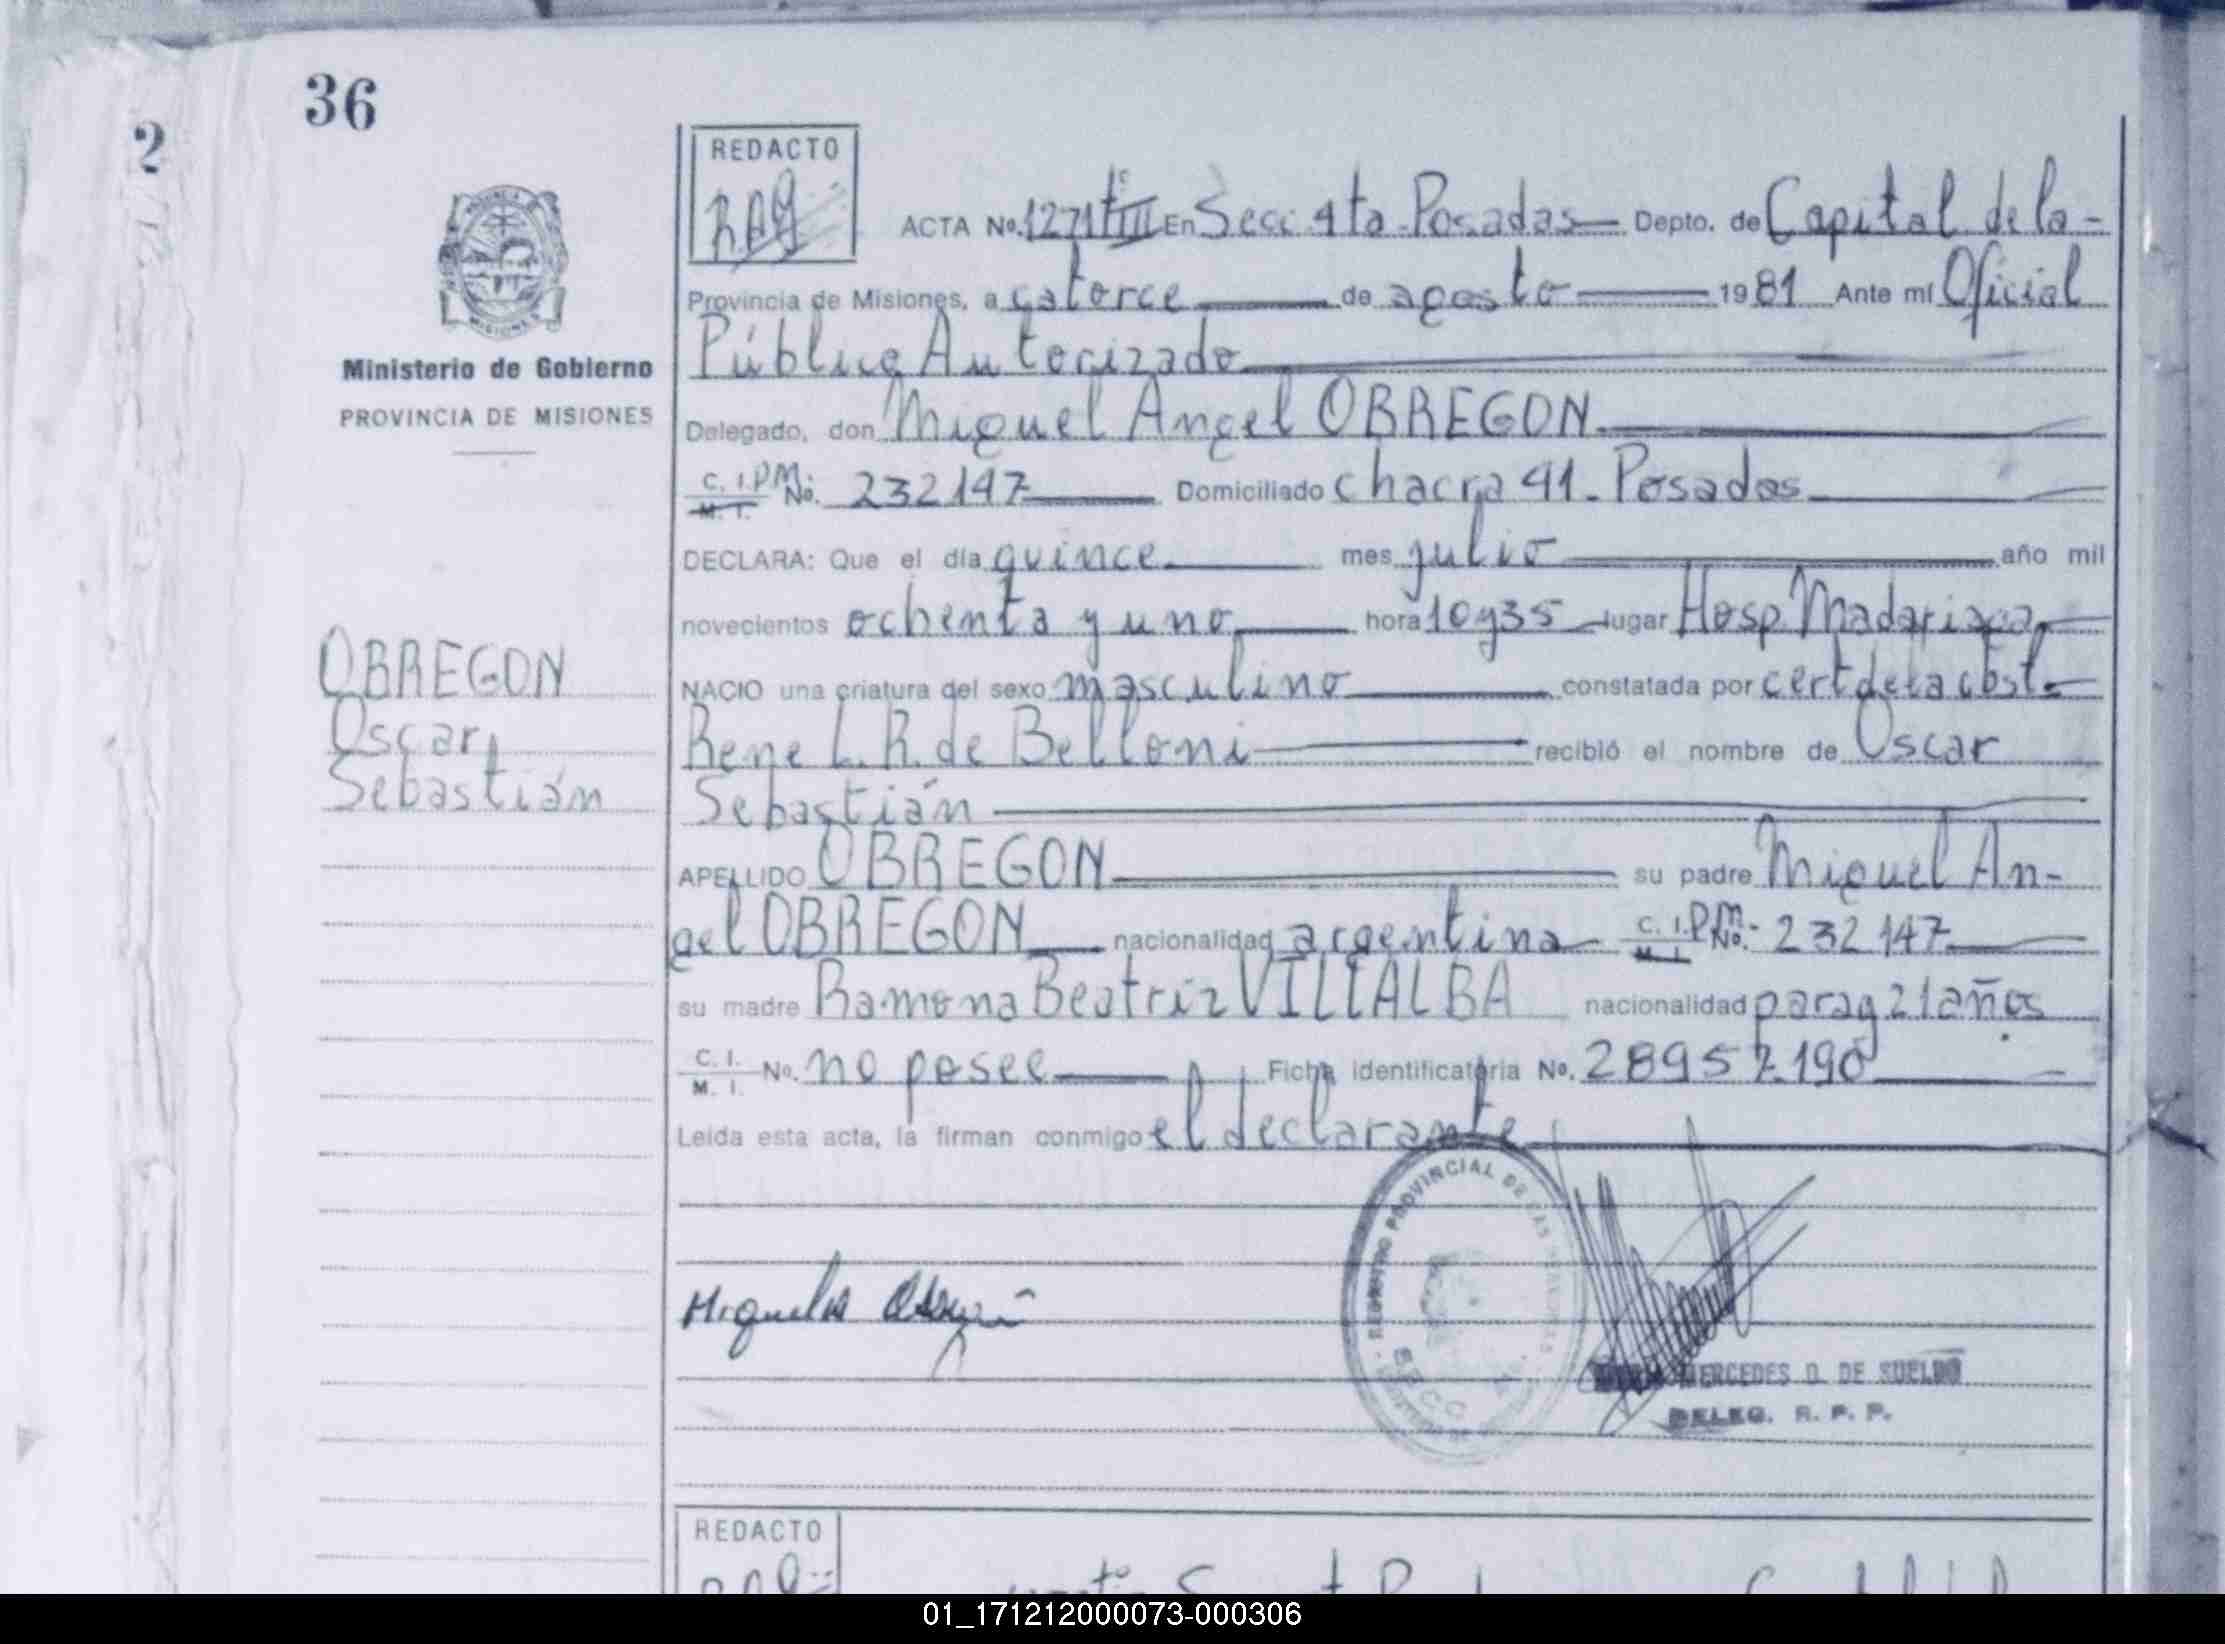 36
2
REDACTO
ACTA No. 1271 tº III En Secc 4ta Posadas Depto. de Capital de la
Provincia de Misiones, a catorce de agosto 1981 Ante mí Oficial
Público Autorizado
Ministerio de Gobierno
PROVINCIA DE MISIONES
Delegado, don Miguel Angel OBREGON
C. I. P.M. No. 232147 Domiciliado chacra 41 - Posadas
M. I.
DECLARA: Que el día quince mes julio año mil
novecientos ochenta y uno hora 10 y 35 lugar Hosp. Madariaga
NACIO una criatura del sexo masculino constatada por cert de la obst.
Rene L. R. de Belloni recibió el nombre de Oscar
Sebastián
OBREGON
Oscar
Sebastián
APELLIDO OBREGON su padre Miguel An-
gel OBREGON nacionalidad argentina C. I. P.M. No. 232147
M. I.
su madre Ramona Beatriz VILLALBA nacionalidad parag 21 años
C. I. No. no posee Ficha identificatoria No. 28957.190
M. I.
Leída esta acta, la firman conmigo el declarante
REGISTRO PROVINCIAL DE LAS
MERCEDES D. DE SUELDO
DELEG. R. P. P.
REDACTO
01_171212000073-000306